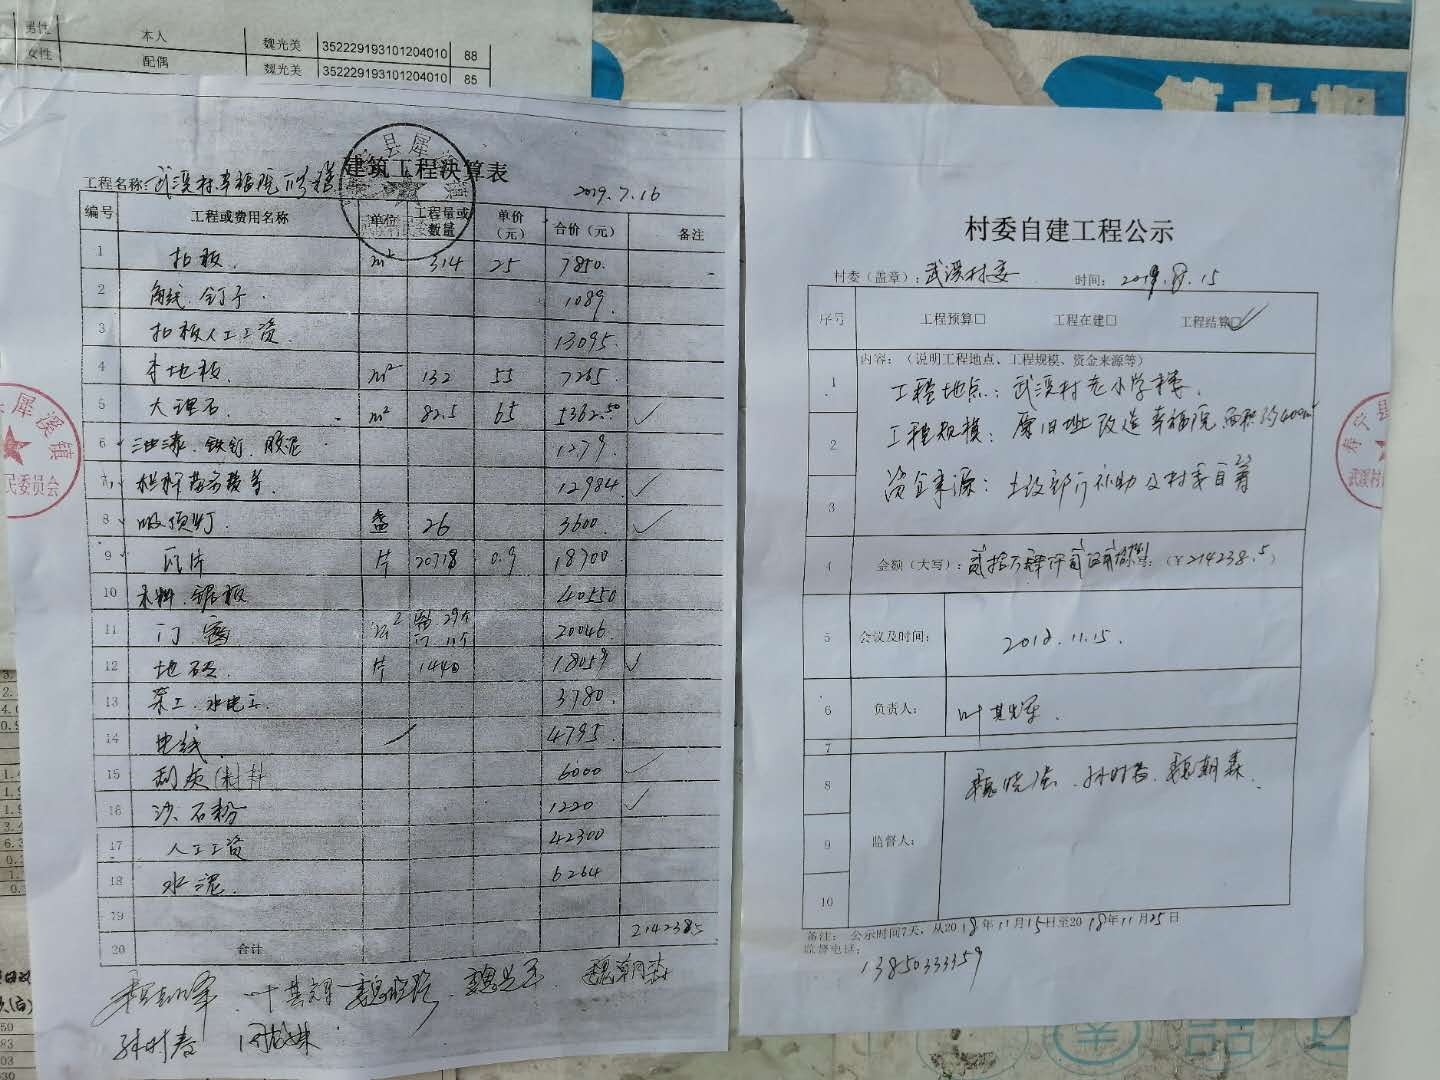 男性 本人 魏光美 352229193101204010 88
女性 配偶 魏光美 352229193101204010 85
建筑工程决算表
工程名称:武溪村幸福院修缮 2019.7.16
编号 工程或费用名称 单位 工程量或数量 单价(元) 合价(元) 备注
1 扣板. m² 314 25 7850.
2 角线.钉子. 1089.
3 扣板人工工资. 13095.
4 木地板. m² 132 55 7265.
5 大理石. m² 82.5 65 5362.50 ✓
6 油漆.铁钉.胶泥 1279.
7 12984 ✓
8 吸顶灯. 盏 26 3600. ✓
9 瓦片 片 20778 0.9 18700
10 木料.锯板 40550
11 门.窗 m² 窗29个 门11个 20046.
12 地砖. 片 1440 18059 ✓
13 杂工.水电工. 3780.
14 电线. 4795.
15 刮灰(料) 6000 ✓
16 沙.石粉 1220 ✓
17 人工工资 42300
18 水泥. 6264
19
20 合计 214238.5
叶其辉 魏朝森
孙时春
村委自建工程公示
村委(盖章):武溪村委 时间:2019.8.15
序号 工程预算□ 工程在建□ 工程结算☑
内容:(说明工程地点、工程规模、资金来源等)
1 工程地点:武溪村老小学楼.
2 工程规模:原旧址改造幸福院,面积约400m²
3 资金来源:上级部门补助及村委自筹
4 金额(大写): (¥214238.5)
5 会议及时间: 2018.11.15.
6 负责人: 叶其辉.
7
8 孙时春.魏朝森.
9 监督人:
10
备注: 公示时间7天,从2018年11月15日至2018年11月25日
监督电话: 13850333359
犀溪镇
民委员会
寿宁县
武溪村
第十期